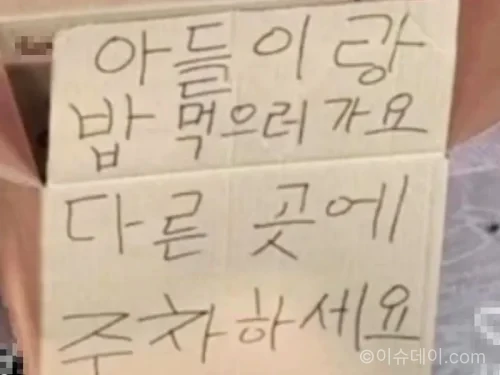 아들이랑
밥 먹으러 가요
다른 곳에
주차하세요
©이슈데이.com